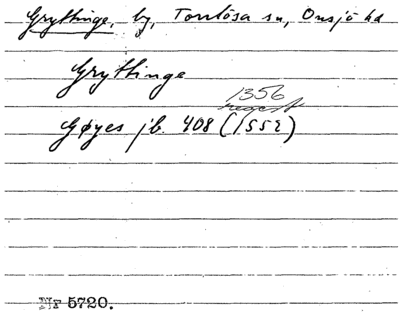 Grythinge, by, Tostösa sn, Onsjö hd
Grythinge
1356
regest
Gøyes jb. 408 (1552)
Nr 5720.